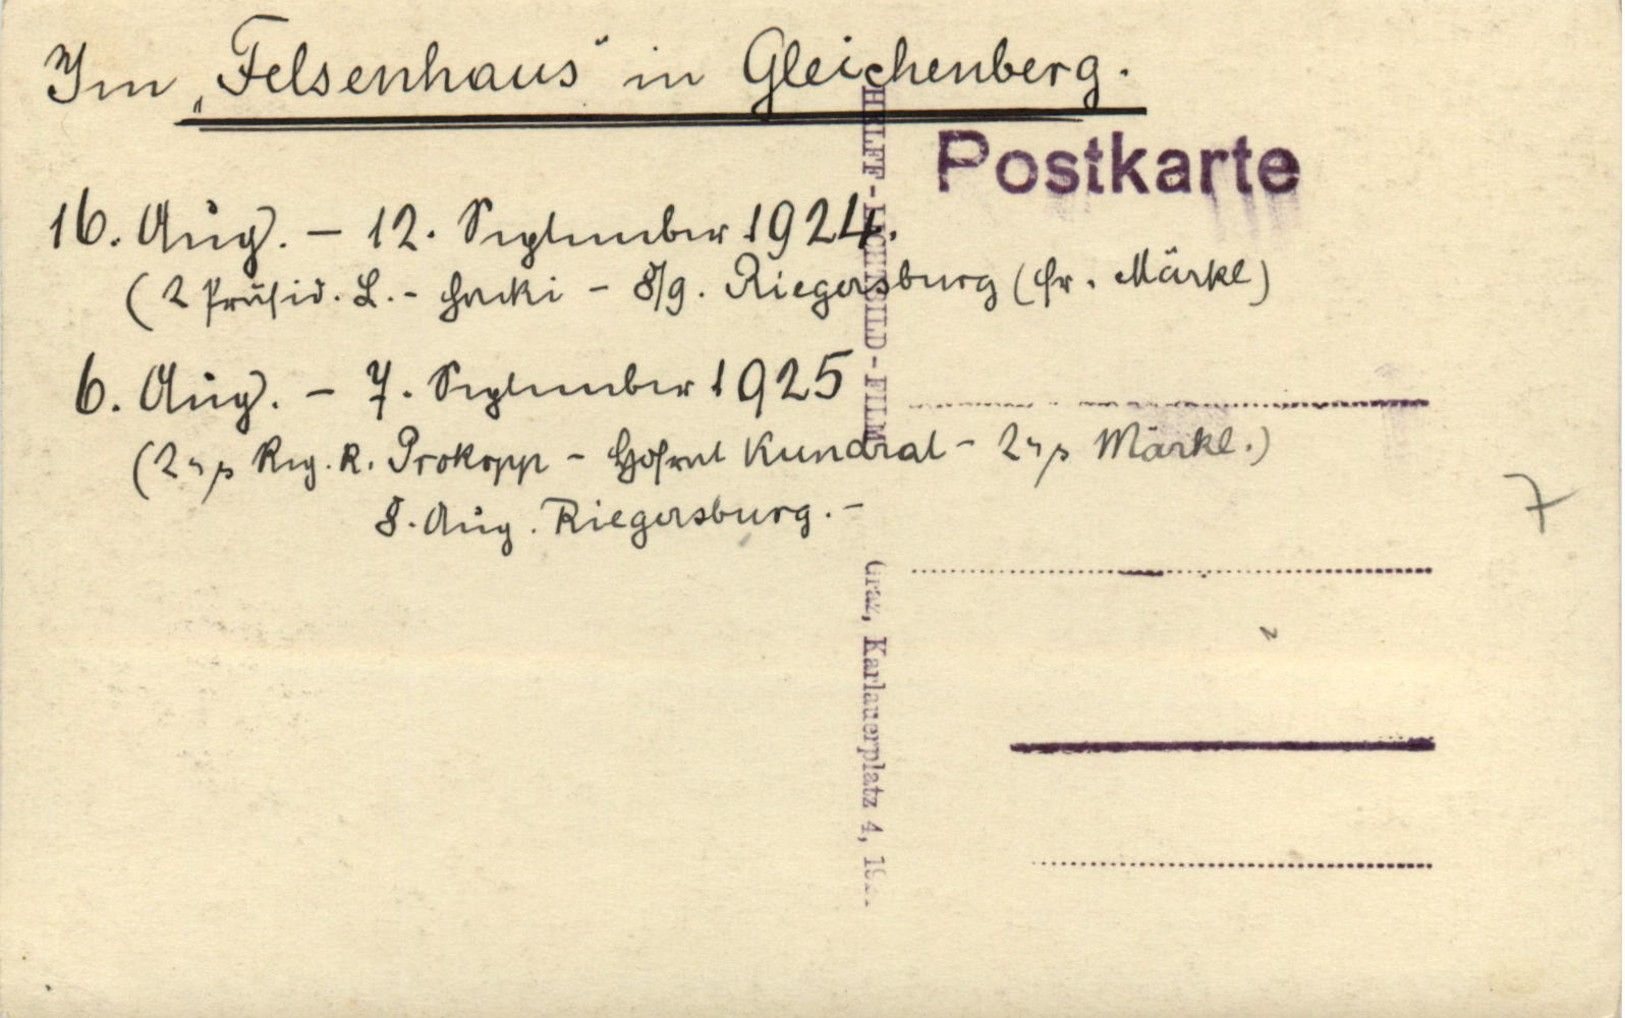 Im „Felsenhaus“ in Gleichenberg.
Postkarte
16. Aug. – 12. September 1924.
(2 Präsid. L. – – 8/9. Riegersburg (Fr. Märkl)
6. Aug. – 7. September 1925
(Reg. R. Prokopp – Hofrat Kundrat – Märkl.)
8. Aug. Riegersburg. –
HELFF - LICHTBILD - FILM
Graz, Karlauerplatz 4,
7